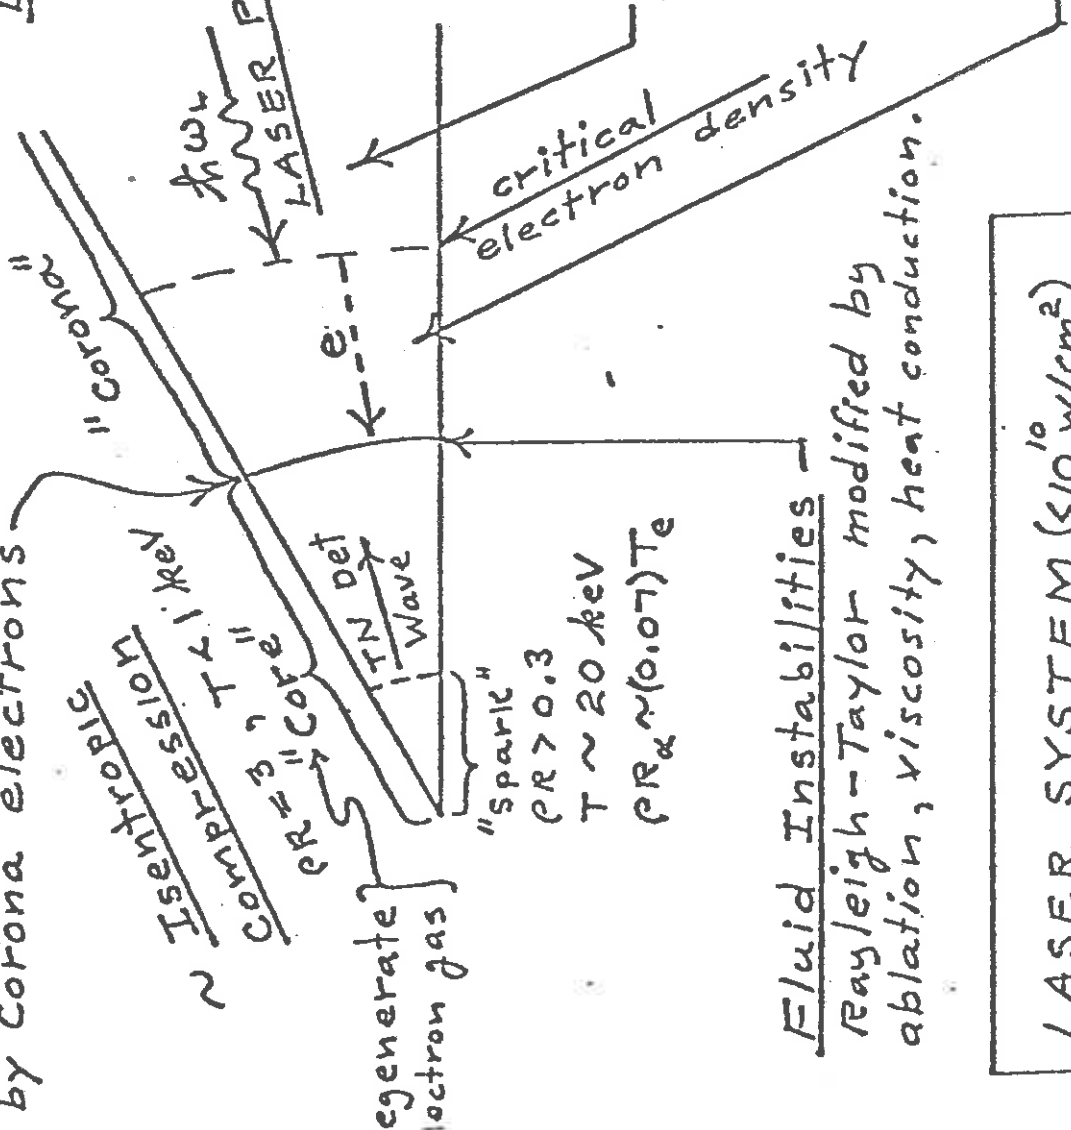 by Corona electrons
~ Isentropic
Compression
ρR = 3, T < 1 keV
"Core"
"Corona"
ħωL
LASER P
e
TN Det
Wave
egenerate
lectron gas
"Spark"
ρR > 0.3
T ~ 20 keV
ρRα ~ (0.07)Te
critical
electron density
Fluid Instabilities
Rayleigh-Taylor modified by
ablation, viscosity, heat conduction.
LASER SYSTEM (≤10¹⁰ W/cm²)